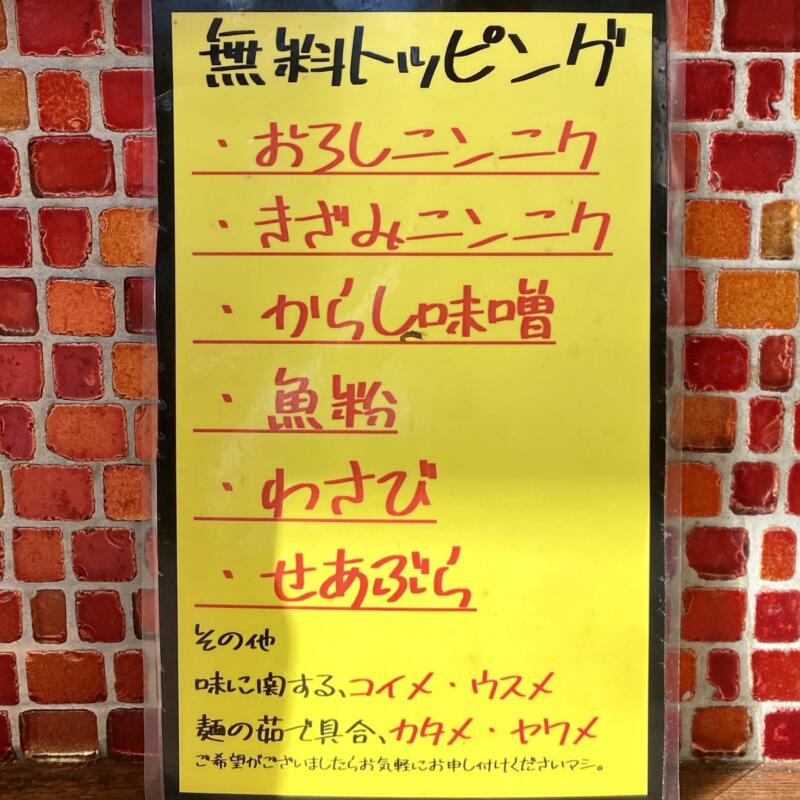 無料トッピング
・おろしニンニク
・きざみニンニク
・からし味噌
・魚粉
・わさび
・せあぶら
その他
味に関する、コイメ・ウスメ
麺の茹で具合、カタメ・ヤワメ
ご希望がございましたらお気軽にお申し付けくださいマシ。